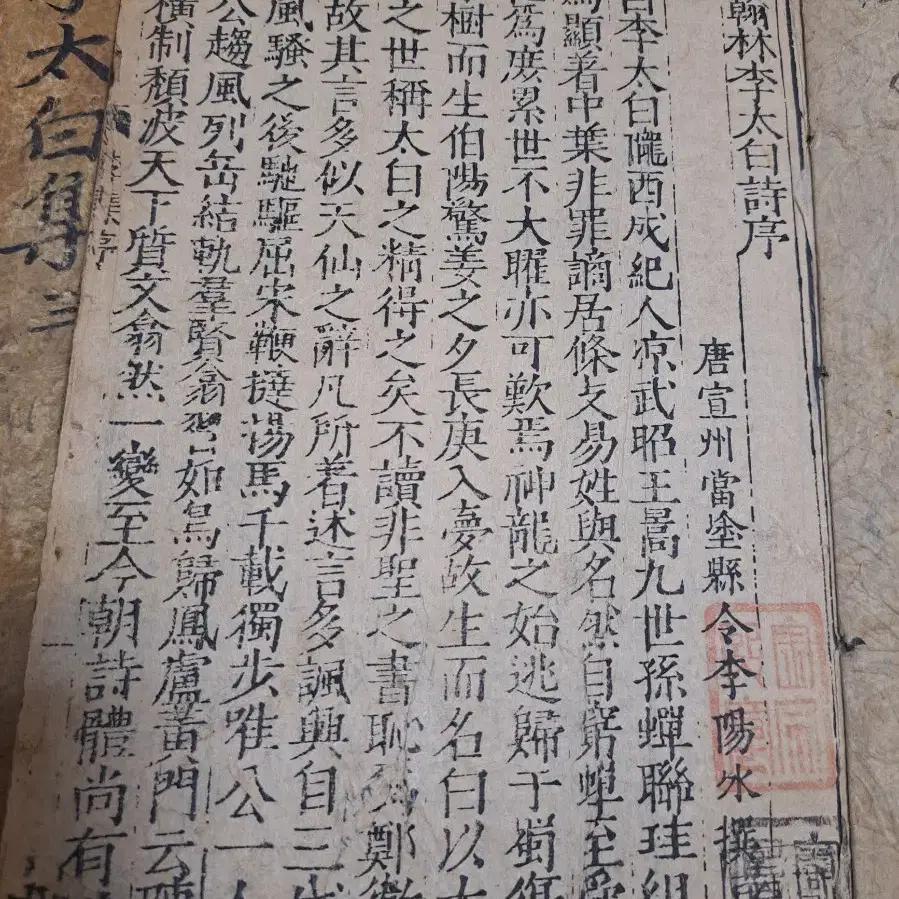 翰林李太白詩序
唐宣州當塗縣令李陽冰撰
李太白隴西成紀人凉武昭王暠九世孫蟬聯珪組
顯著中葉非罪謫居條支易姓與名然自窮蟬至
爲庻累世不大曜亦可歎焉神龍之始逃歸于蜀復
樹而生伯陽驚姜之夕長庚入夢故生而名白以太
之世稱太白之精得之矣不讀非聖之書恥爲鄭衛
故其言多似天仙之辭凡所著述言多諷興自三代
風騷之後馳驅屈宋鞭撻揚馬千載獨步唯公一人
公趨風列岳結軌羣賢翕習如鳥歸鳳盧黃門云陳
橫制頹波天下質文翕然一變至今朝詩體尚有
李太白集
三